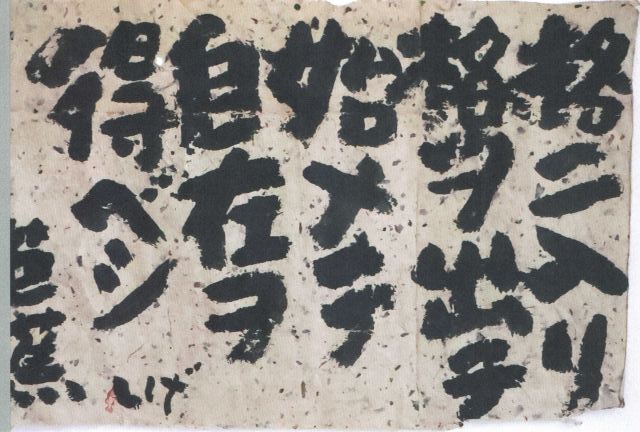 格ニ入リ
格ヲ出テ
始メテ
自在ヲ
得ベシ
芭蕉
しげ